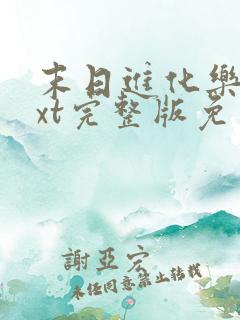 末日进化乐
xt完整版免
謝亞宏
未经同意禁止转载